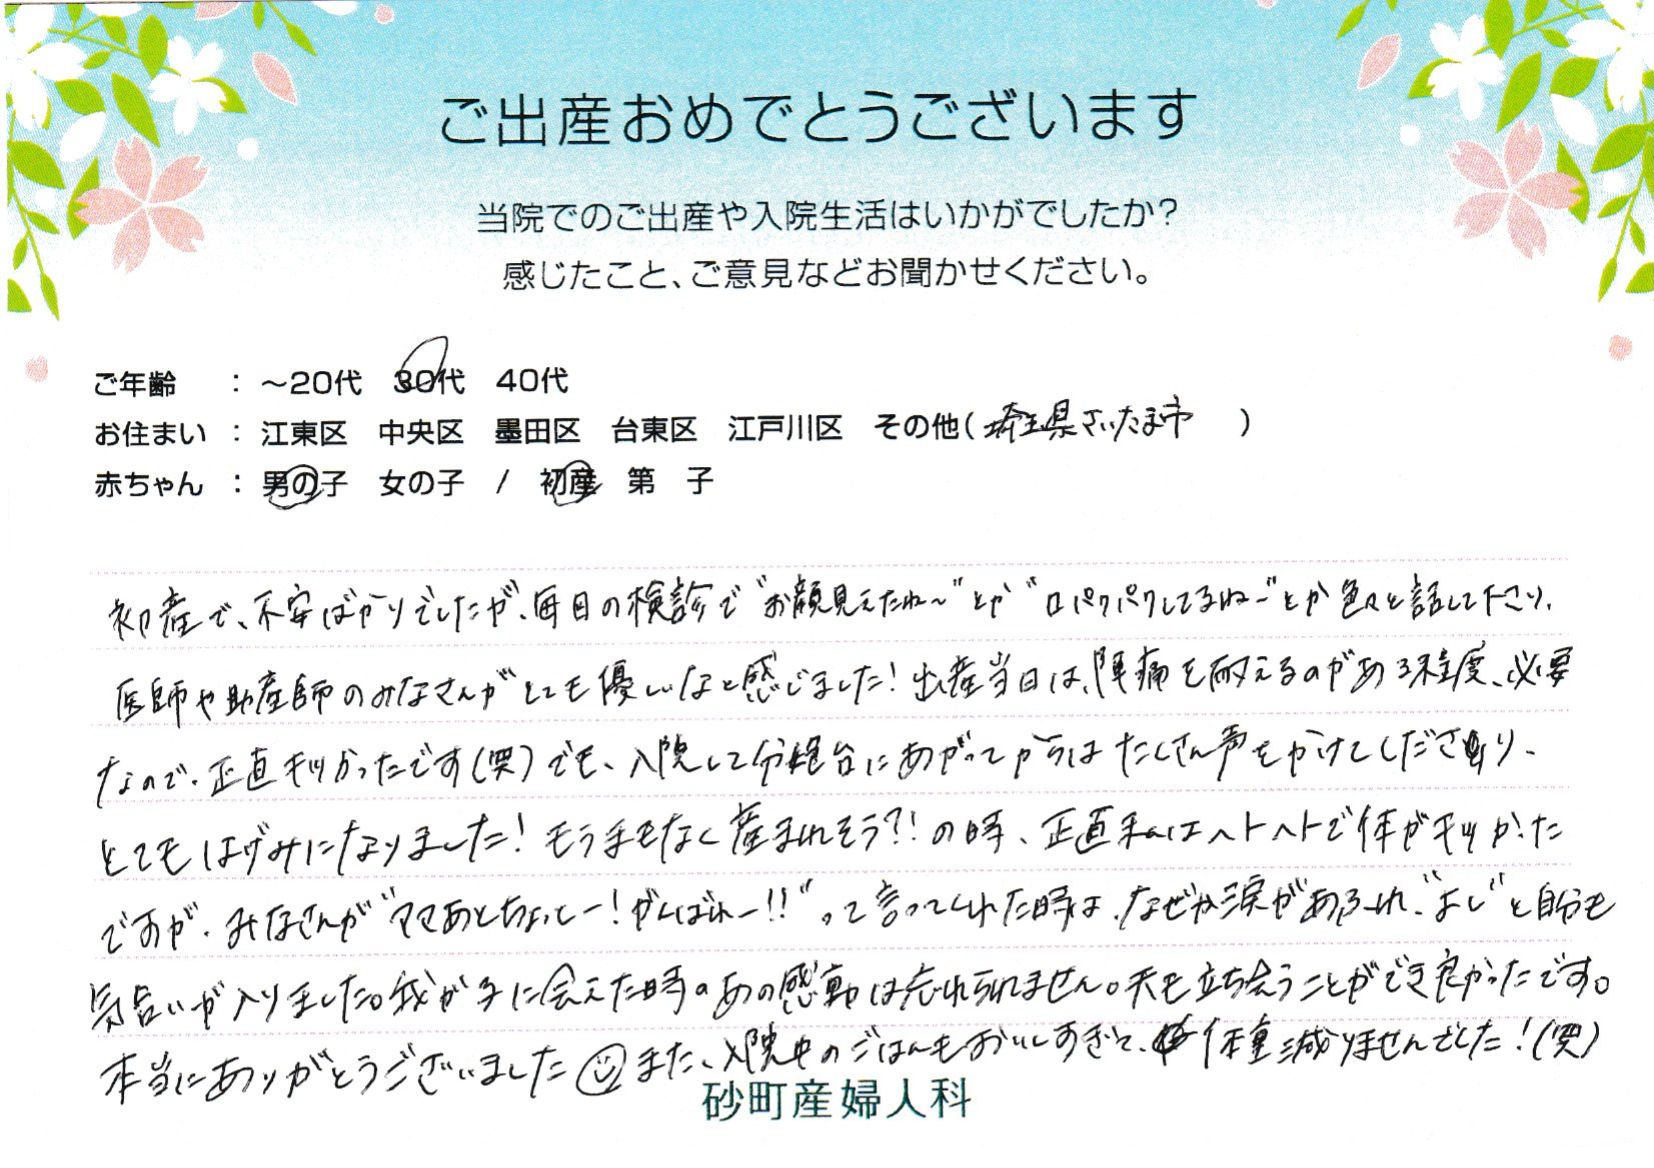 ご出産おめでとうございます
当院でのご出産や入院生活はいかがでしたか?
感じたこと、ご意見などお聞かせください。
ご年齢 : ～20代 30代 40代
お住まい : 江東区 中央区 墨田区 台東区 江戸川区 その他( 埼玉県さいたま市 )
赤ちゃん : 男の子 女の子 / 初産 第 子
初産で、不安ばかりでしたが、毎日の検診で"お顔見えたね～"とか"口パクパクしてるねー"とか色々と話して下さり、
医師や助産師のみなさんがとても優しいなと感じました!出産当日は、陣痛を耐えるのがある程度、必要
なので、正直キツかったです(笑)でも、入院して分娩台にあがってからはたくさん声をかけてくださり、
とてもはげみになりました!もうまもなく産まれそう?!の時、正直私はヘトヘトで体がキツかった
ですが、みなさんが"ママあとちょっとー!がんばれー!!"って言ってくれた時は、なぜか涙があふれ、"よし"と自分も
気合いが入りました。我が子に会えた時のあの感動は忘れられません。夫も立ち会うことができ良かったです。
本当にありがとうございました☺また、入院中のごはんもおいしすぎて、体重減りませんでした!(笑)
砂町産婦人科